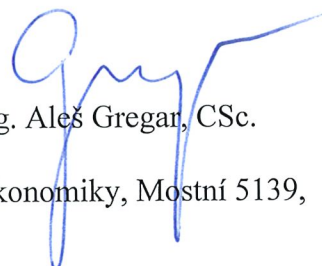 g. Aleš Gregar, CSc.
konomiky, Mostní 5139,